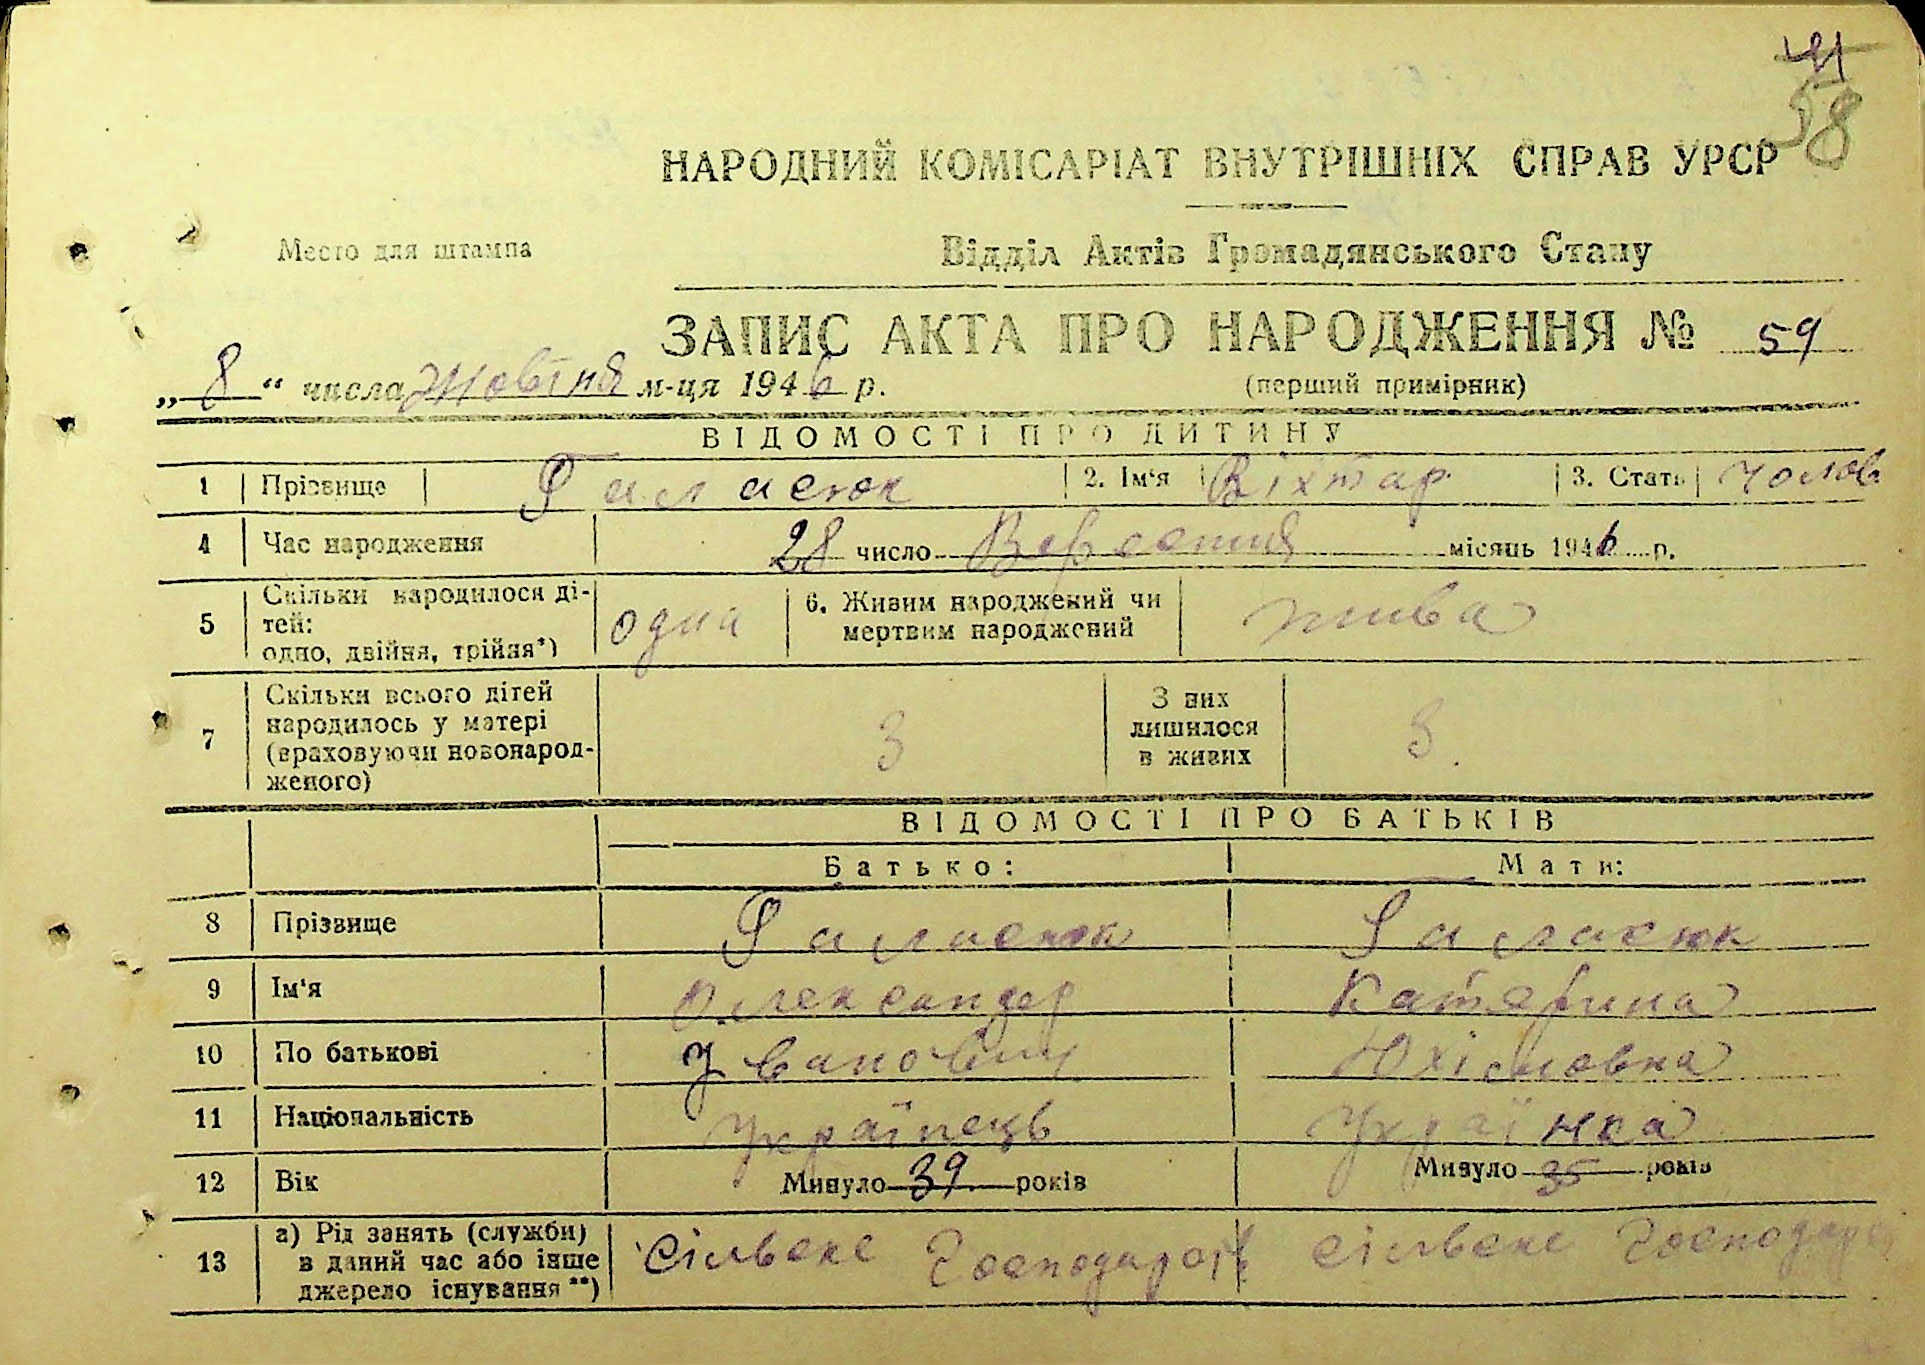 58
НАРОДНИЙ КОМІСАРІАТ ВНУТРІШНІХ СПРАВ УРСР
Место для штампа
Відділ Актів Громадянського Стану
ЗАПИС АКТА ПРО НАРОДЖЕННЯ № 59
„ 8 “ числа Жовтня м-ця 1946 р. (перший примірник)
ВІДОМОСТІ ПРО ДИТИНУ
1 Прізвище Галасюк 2. Ім'я Віхтар 3. Стать чолов
4 Час народження 28 число Вересния місяць 1946 р.
5 Скільки народилося ді-
тей:
одно, двійня, трійня*) одна 6. Живим народжений чи
мертвим народжений жива
7 Скільки всього дітей
народилось у матері
(враховуючи новонарод-
женого) 3 З них
лишилося
в живих 3.
ВІДОМОСТІ ПРО БАТЬКІВ
Батько: Мати:
8 Прізвище Галасюк Галасюк
9 Ім'я Олександер Катерина
10 По батькові Івановіч Юхімовна
11 Національність Українець Українка
12 Вік Минуло 39 років Минуло 35 років
13 а) Рід занять (служби)
в даний час або інше
джерело існування **) Сільске Господарст сільске Господарс